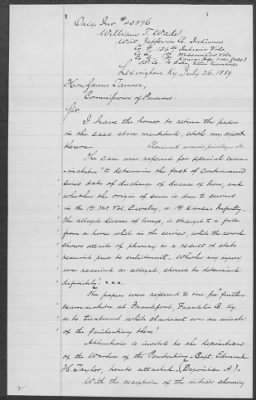 Orig. Inv. # 40376
William T. Wake,
West Jefferson
Co. F. 136th Indiana Vols.
Lexington Ky. July 26, 1889
Hon. James Tanner,
Commissioner of Pensions,
Sir:
I have the honor to return the papers
in the case above mentioned, with my report
thereon.
This case was referred for special exam-
ination "to determine the fact of continuance
since date of discharge of disease of lungs, and
whether the origin of same is due to service
in the 1st Vol. Cavalry, or Infantry.
The alleged disease of lungs, is charged to a fall
from a horse while in the service, while the record
shows attack of pleurisy as a result of
received prior to enlistment. Whether any injury
was received as alleged, should be determined
definitely." x x x
The papers were referred to me for "further
examination at Frankford, Franklin Co. Ky.
as to treatment while claimant was an inmate
of the Penitentiary there"
Attention is invited to the deposition
of the Warden of the Penitentiary Capt. Edmund
H. Taylor, hereto attached, (Deposition A)
With the exception of the indices showing